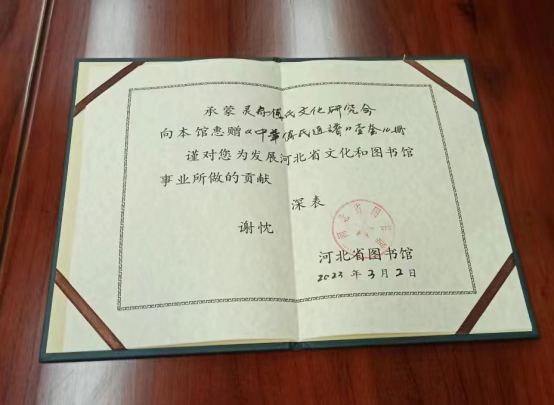 承蒙灵寿傅氏文化研究会
向本馆惠赠《中华傅氏通谱》壹套10册
谨对您为发展河北省文化和图书馆
事业所做的贡献
深表
谢忱
河北省图书馆
河北省图书馆
2023年3月2日